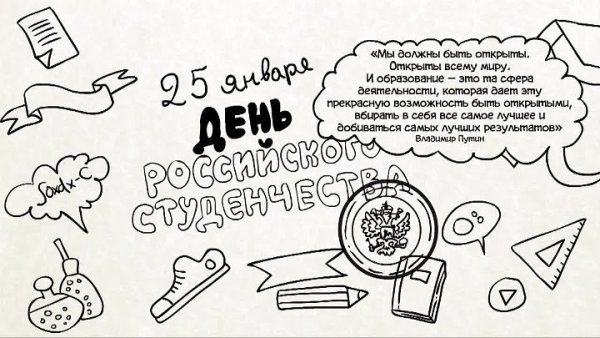 25 января
ДЕНЬ
РОССИЙСКОГО
СТУДЕНЧЕСТВА
«Мы должны быть открыты.
Открыты всему миру.
И образование – это та сфера
деятельности, которая дает эту
прекрасную возможность быть открытыми,
вбирать в себя все самое лучшее и
добиваться самых лучших результатов»
Владимир Путин